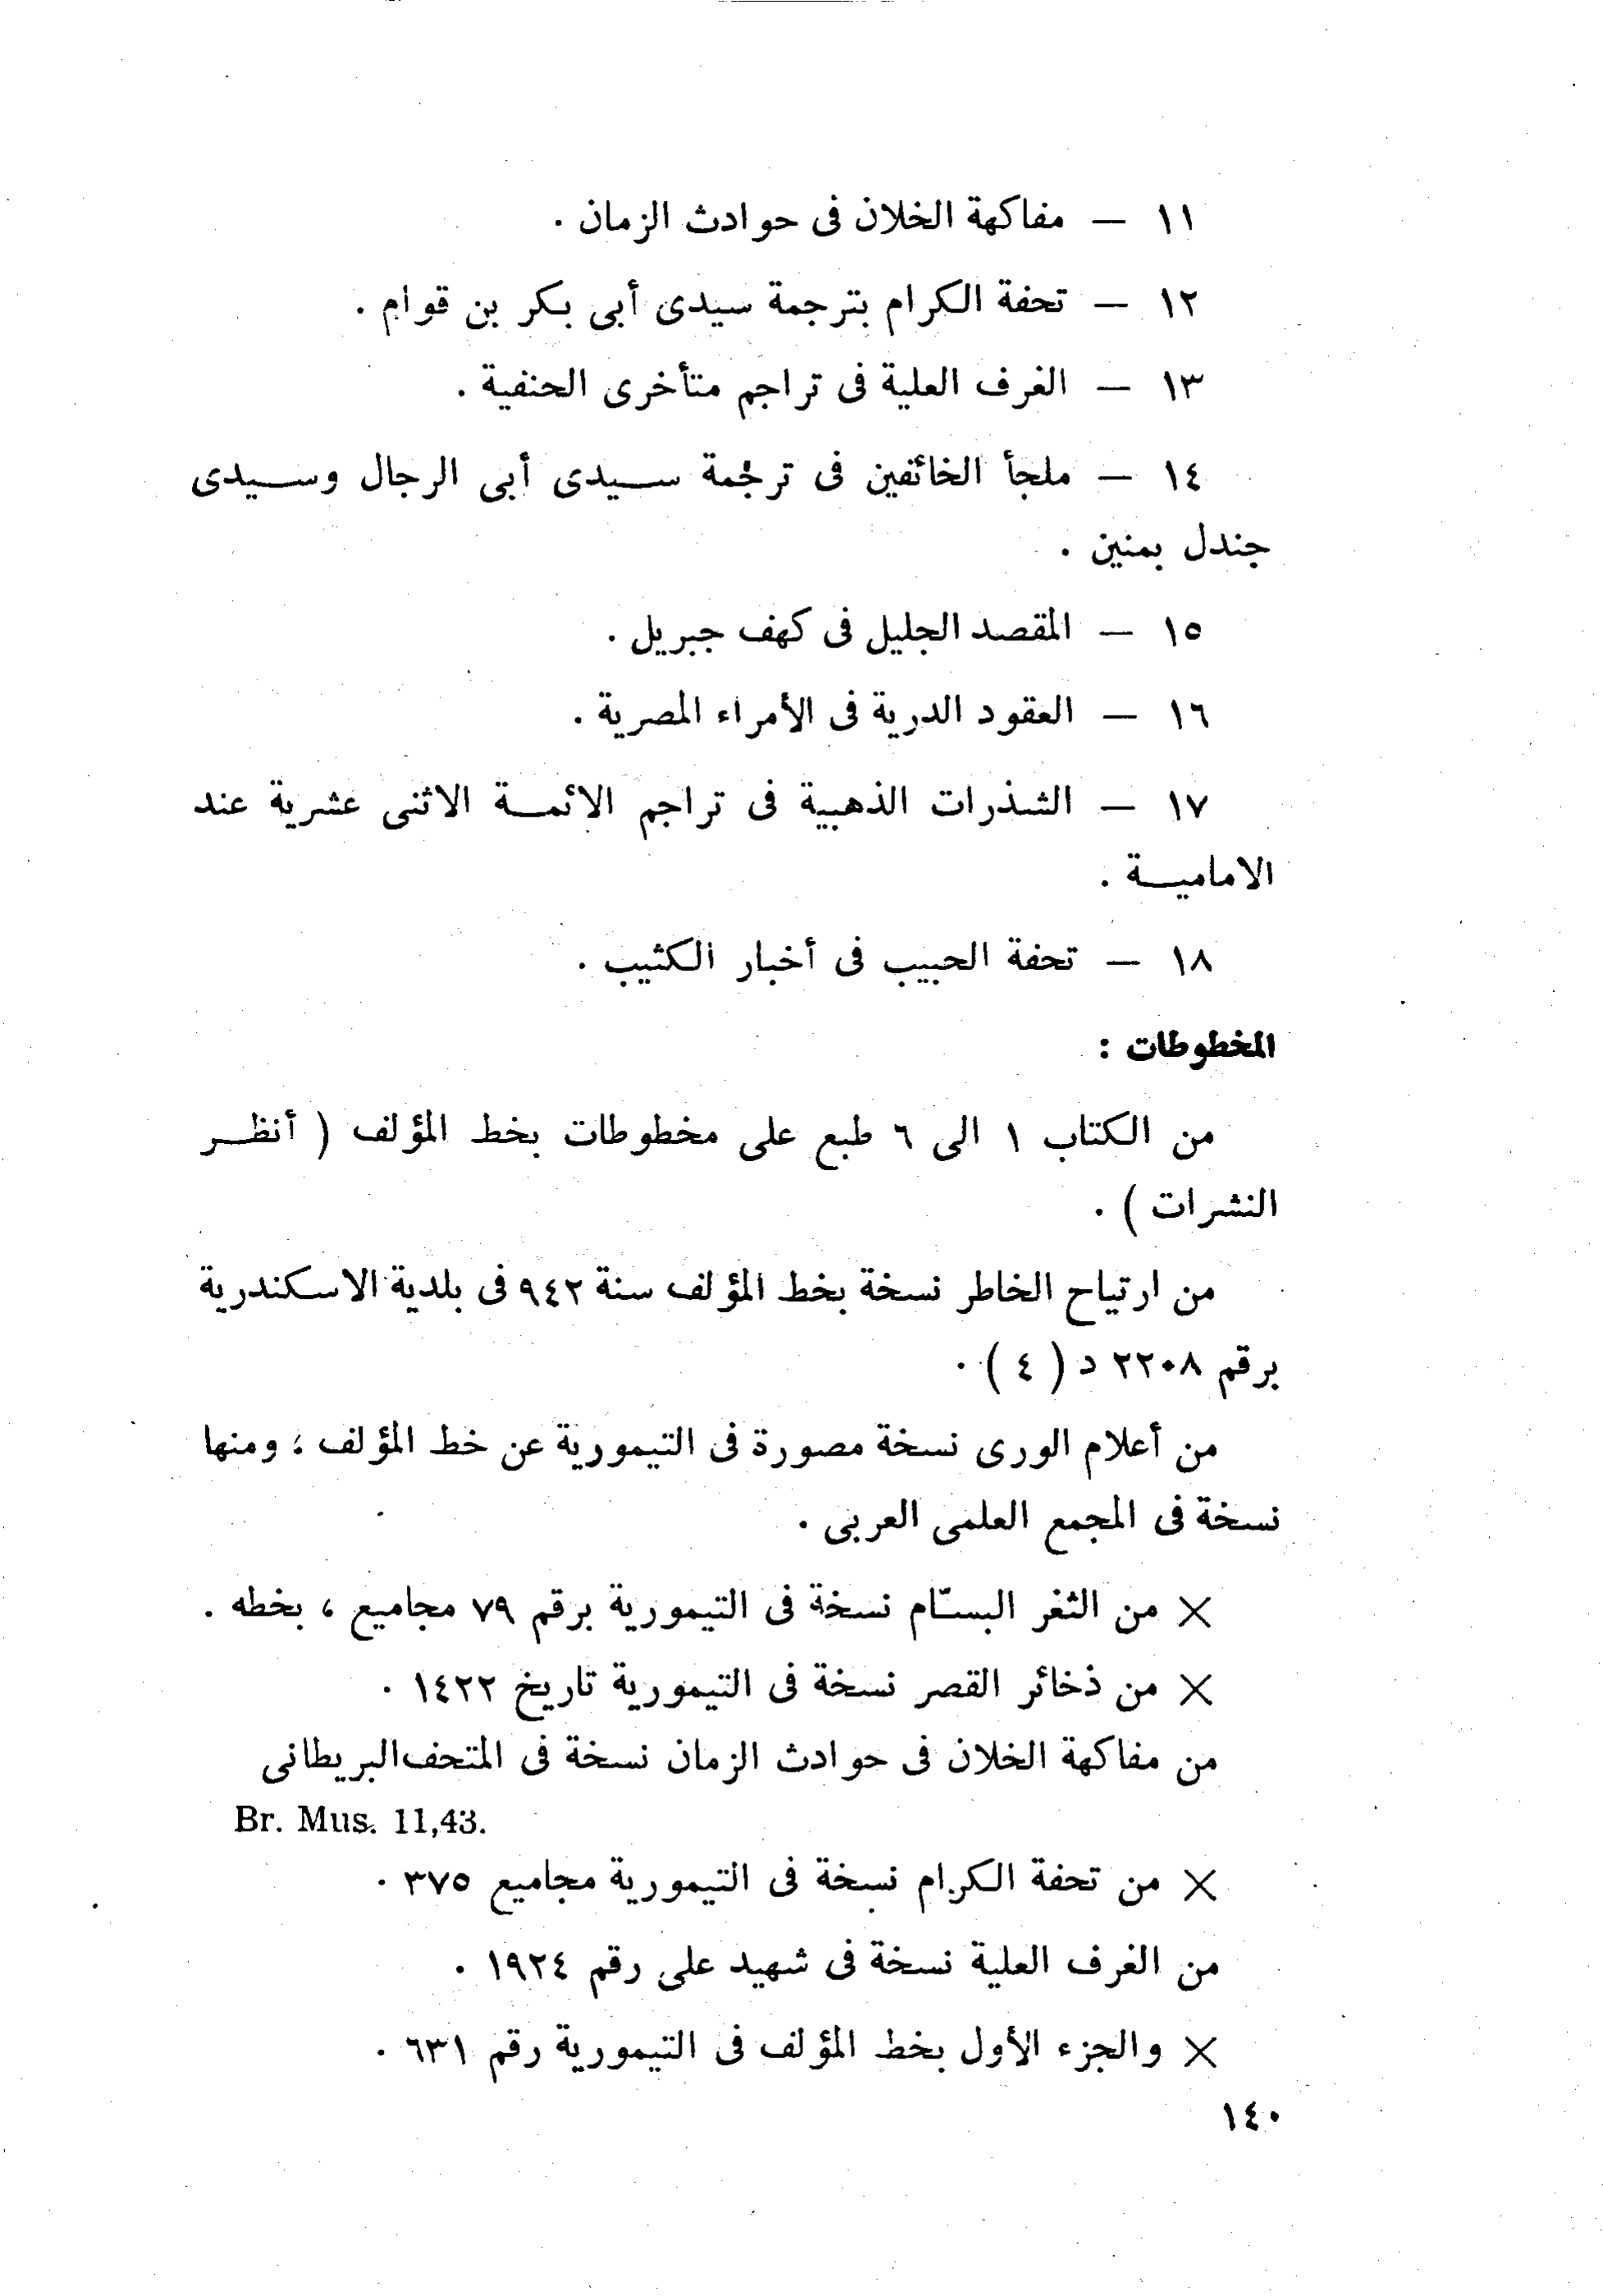 ١١ — مفاكهة الخلان فى حوادث الزمان .
١٢ — تحفة الكرام بترجمة سيدى أبى بكر بن قوام .
١٣ — الغرف العلية فى تراجم متأخرى الحنفية .
١٤ — ملجأ الخائفين فى ترجمة سيدى أبى الرجال وسيدى
جندل بمنين .
١٥ — المقصد الجليل فى كهف جبريل .
١٦ — العقود الدرية فى الأمراء المصرية .
١٧ — الشذرات الذهبية فى تراجم الائمة الاثنى عشرية عند
الامامية .
١٨ — تحفة الحبيب فى أخبار الكثيب .
المخطوطات :
من الكتاب ١ الى ٦ طبع على مخطوطات بخط المؤلف ( أنظر
النشرات ) .
من ارتياح الخاطر نسخة بخط المؤلف سنة ٩٤٢ فى بلدية الاسكندرية
برقم ٢٢٠٨ د ( ٤ ) .
من أعلام الورى نسخة مصورة فى التيمورية عن خط المؤلف ؛ ومنها
نسخة فى المجمع العلمى العربى .
× من الثغر البسّام نسخة فى التيمورية برقم ٧٩ مجاميع ، بخطه .
× من ذخائر القصر نسخة فى التيمورية تاريخ ١٤٢٢ .
من مفاكهة الخلان فى حوادث الزمان نسخة فى المتحف البريطانى
Br. Mus. 11,43.
× من تحفة الكرام نسخة فى التيمورية مجاميع ٣٧٥ .
من الغرف العلية نسخة فى شهيد على رقم ١٩٢٤ .
× والجزء الأول بخط المؤلف فى التيمورية رقم ٦٣١ .
١٤٠